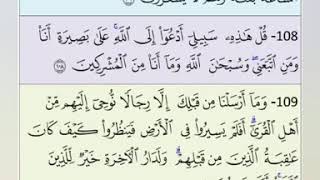 108- قُلْ هَٰذِهِۦ سَبِيلِىٓ أَدْعُوٓا۟ إِلَى ٱللَّهِ ۚ عَلَىٰ بَصِيرَةٍ أَنَا۠
وَمَنِ ٱتَّبَعَنِى ۖ وَسُبْحَٰنَ ٱللَّهِ وَمَآ أَنَا۠ مِنَ ٱلْمُشْرِكِينَ ۝١٠٨
109- وَمَآ أَرْسَلْنَا مِن قَبْلِكَ إِلَّا رِجَالًا نُّوحِىٓ إِلَيْهِم مِّنْ
أَهْلِ ٱلْقُرَىٰٓ ۗ أَفَلَمْ يَسِيرُوا۟ فِى ٱلْأَرْضِ فَيَنظُرُوا۟ كَيْفَ كَانَ
عَٰقِبَةُ ٱلَّذِينَ مِن قَبْلِهِمْ ۗ وَلَدَارُ ٱلْءَاخِرَةِ خَيْرٌ لِّلَّذِينَ